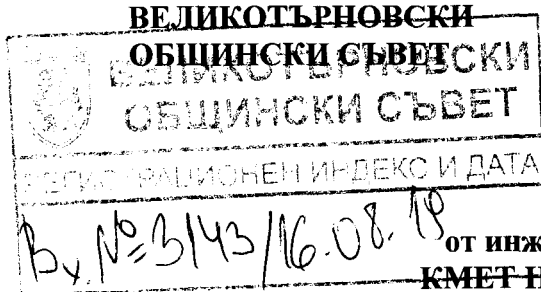 ВЕЛИКОТЪРНОВСКИ
ОБЩИНСКИ СЪВЕТ
ВЕЛИКОТЪРНОВСКИ
ОБЩИНСКИ СЪВЕТ
РЕГИСТРАЦИОНЕН ИНДЕКС И ДАТА
Вх. №=3143/16.08.19
от инж
КМЕТ Н